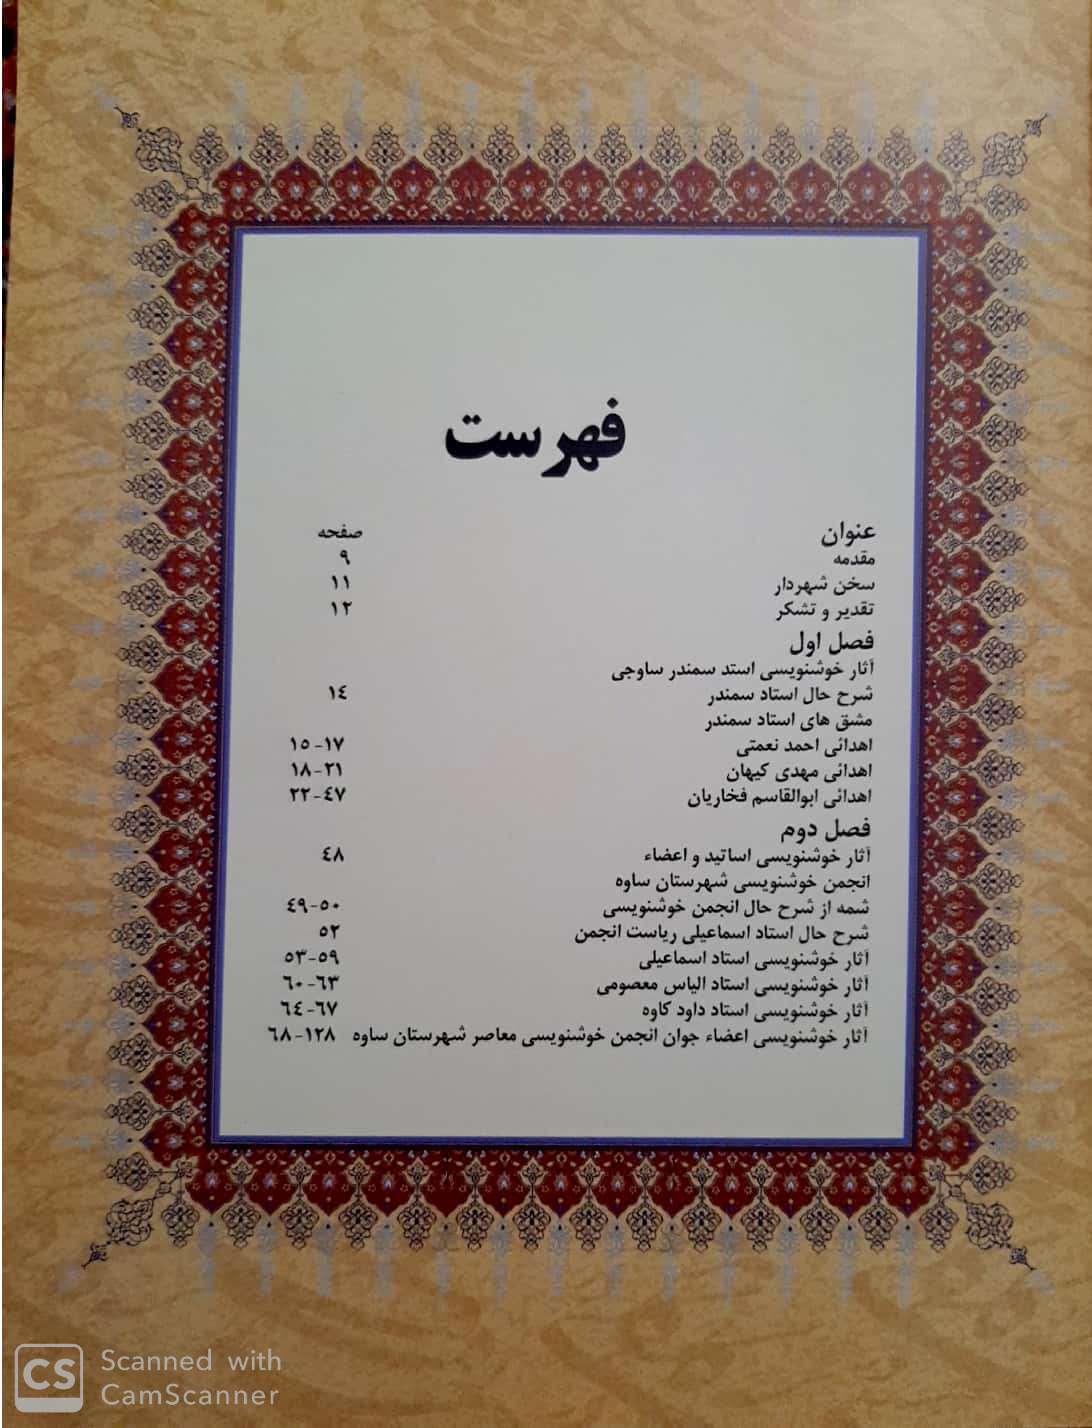 فهرست
عنوان صفحه
مقدمه ۹
سخن شهردار ۱۱
تقدیر و تشکر ۱۲
فصل اول
آثار خوشنویسی استد سمندر ساوجی
شرح حال استاد سمندر ١٤
مشق های استاد سمندر
اهدائی احمد نعمتی ۱۵-۱۷
اهدائی مهدی کیهان ۱۸-۲۱
اهدائی ابوالقاسم فخاریان ۲۲-٤۷
فصل دوم
آثار خوشنویسی اساتید و اعضاء ٤۸
انجمن خوشنویسی شهرستان ساوه
شمه از شرح حال انجمن خوشنویسی ٤۹-۵۰
شرح حال استاد اسماعیلی ریاست انجمن ۵۲
آثار خوشنویسی استاد اسماعیلی ۵۳-۵۹
آثار خوشنویسی استاد الیاس معصومی ٦۰-٦۳
آثار خوشنویسی استاد داود کاوه ٦٤-٦۷
آثار خوشنویسی اعضاء جوان انجمن خوشنویسی معاصر شهرستان ساوه ٦۸-۱۲۸
CS Scanned with
CamScanner